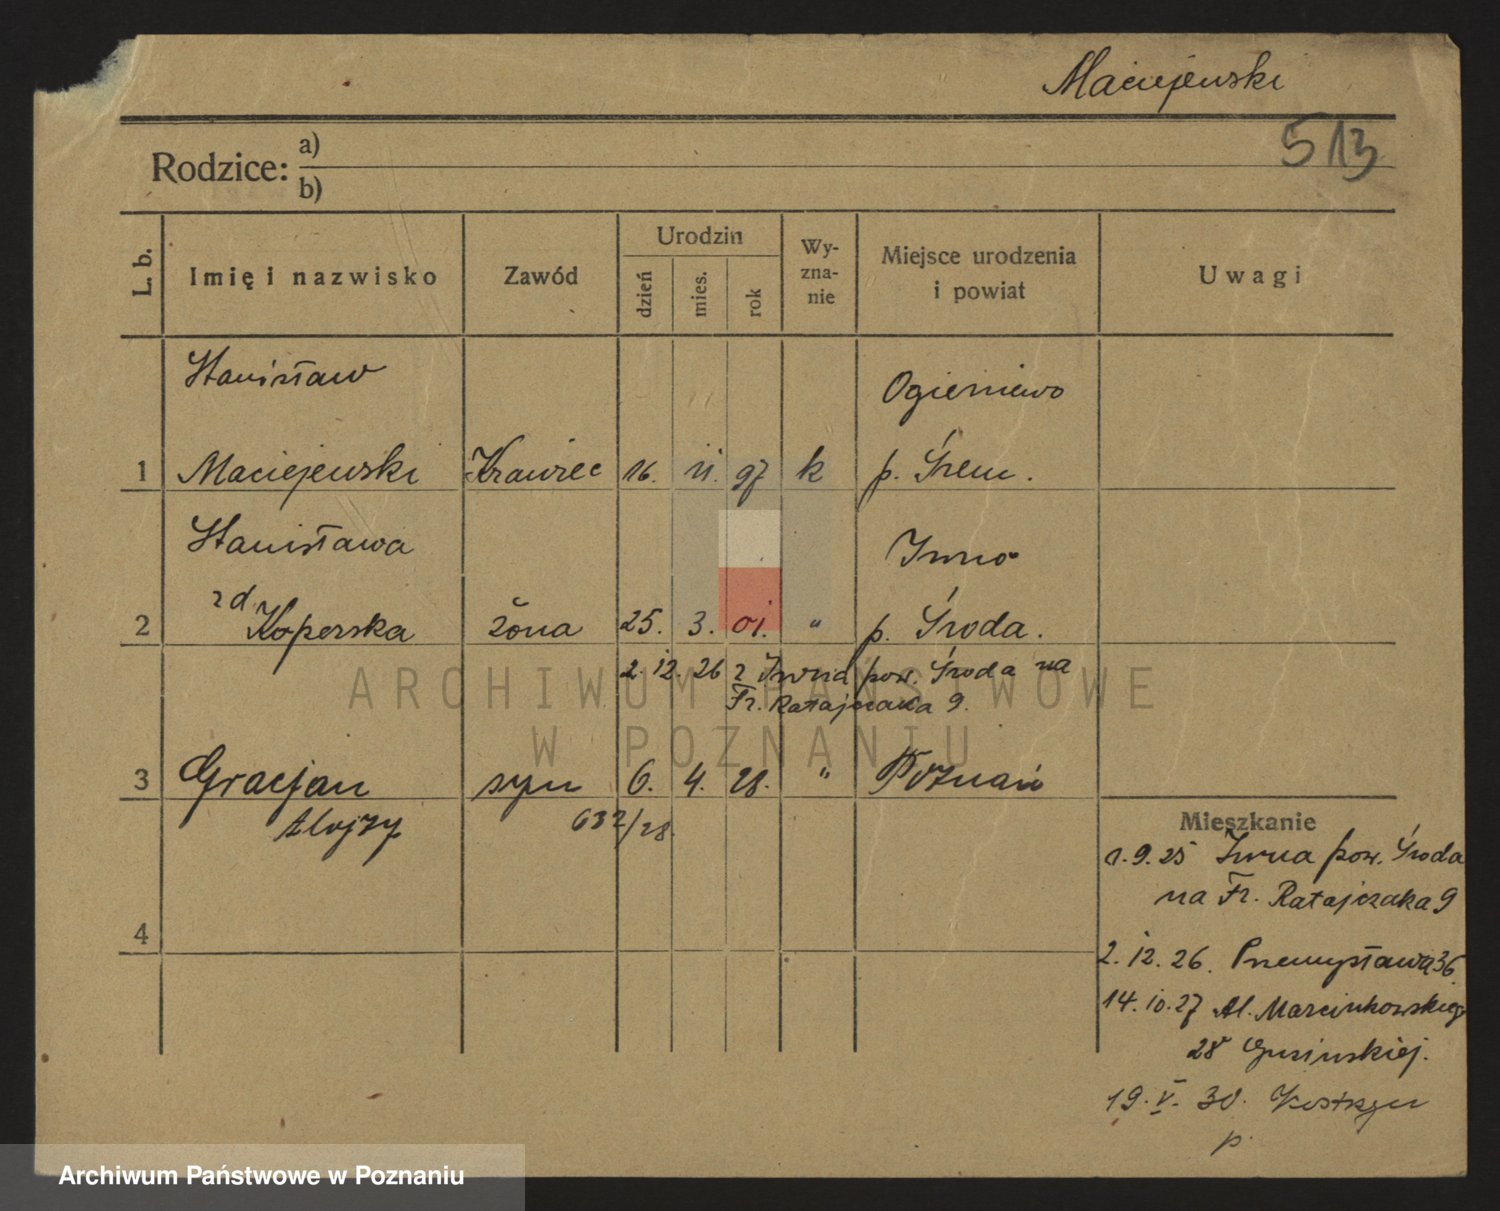 Maciejewski
513
Rodzice: a)
b)
L. b.
Imię i nazwisko
Zawód
Urodzin
dzień
mies.
rok
Wy-
zna-
nie
Miejsce urodzenia
i powiat
Uwagi
Stanisław
Ogieniewo
1 Maciejewski Krawiec 16. 11. 97 k p. Śrem.
Stanisława
Iwno
2 zd Koperska żona 25. 3. 01. " p. Środa.
2. 12. 26 z Iwna pow. Środa na
Fr. Ratajczaka 9.
ARCHIWUM PAŃSTWOWE
W POZNANIU
3 Gracjan syn 6. 4. 28. " Poznań
Alojzy 632/28.
Mieszkanie
1. 9. 25 Iwna pow. Środa
na Fr. Ratajczaka 9
4
2. 12. 26. Przemysława 36
14. 10. 27 Al. Marcinkowskiego
28
19. V. 30. Kostrzyn
p.
Archiwum Państwowe w Poznaniu